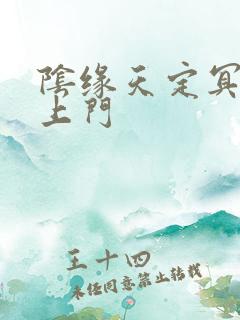 陰缘天定冥
上門
王十四
未经同意禁止转载